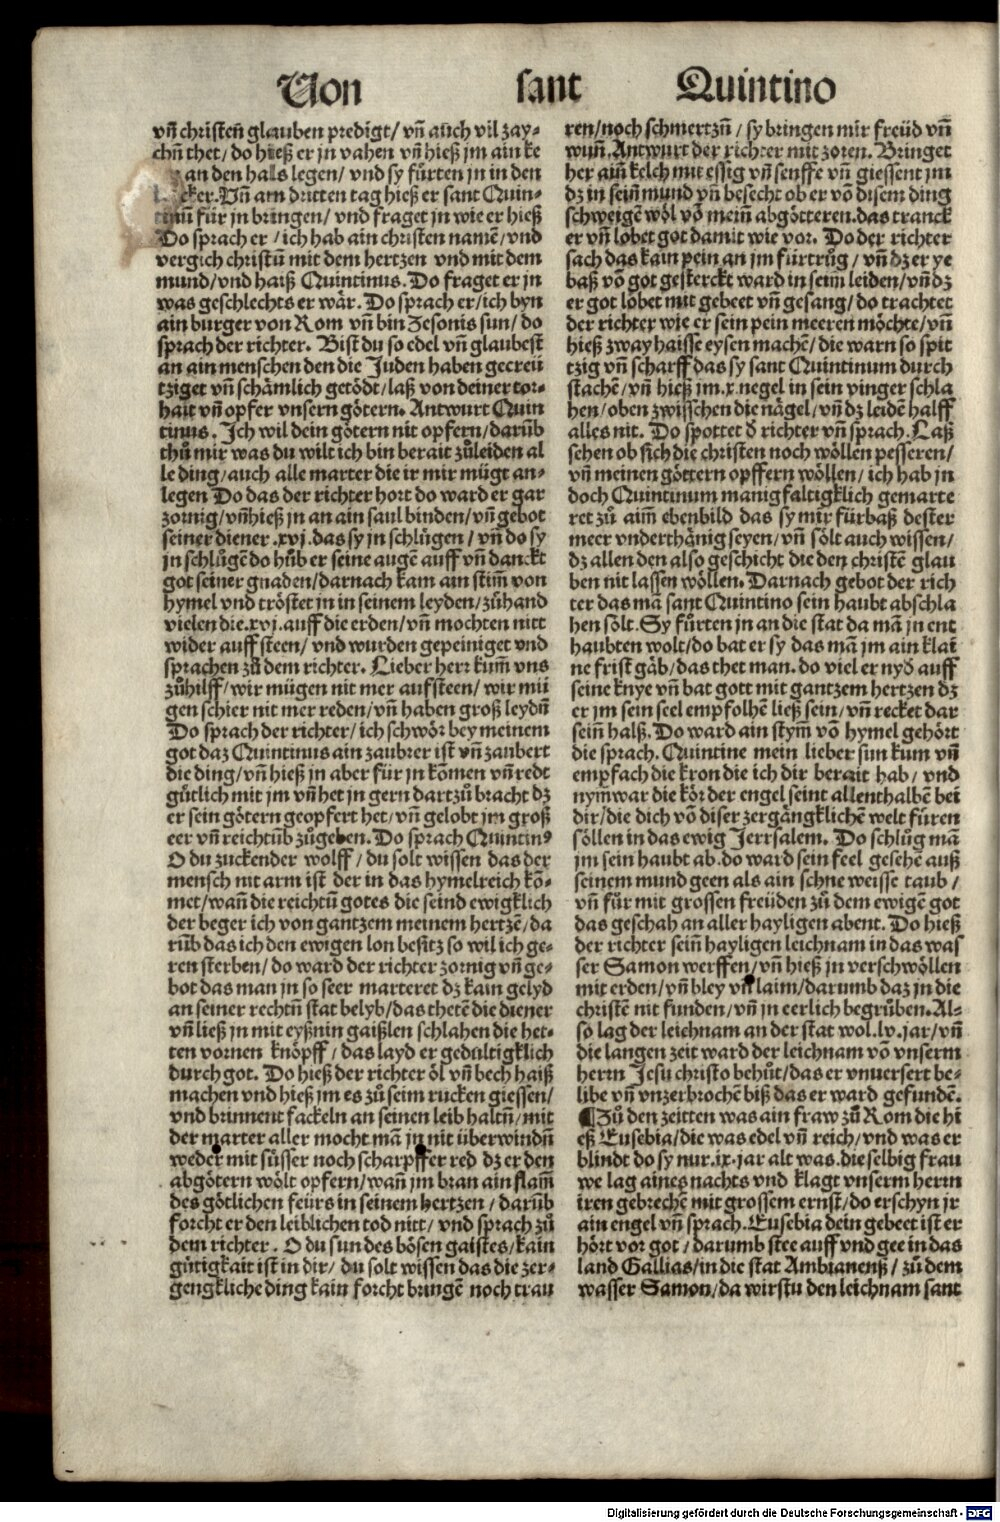 Von sant Quintino
vn̄ christen̄ glauben predigt/ vn̄ auch vil zay⸗
chn̄ thet/ do hieß er jn vahen vn̄ hieß jm ain ke
an den hals legen/ vnd sy fůrten jn in den
Vn̄ am dritten tag hieß er sant Quin⸗
für jn bringen/ vnd fraget jn wie er hieß
Do sprach er/ ich hab ain christen namē/ vnd
vergich christū mit dem hertzen vnd mit dem
mund/ vnd haiß Quintinus. Do fraget er jn
was geschlechts er wär. Do sprach er/ ich byn
ain burger von Rom vn̄ bin Zesonis sun/ do
sprach der richter. Bist du so edel vn̄ glaubest
an ain menschen den die Juden haben gecreü
tziget vn̄ schämlich getödt/ laß von deiner tor⸗
hait vn̄ opfer vnsern götern. Antwurt Quin
tinus. Ich wil dein götern nit opfern/ darūb
thů mir was du wilt ich bin berait zůleiden al
le ding/ auch alle marter die ir mir mügt an⸗
legen Do das der richter hort do ward er gar
zornig/ vn̄ hieß jn an ain saul binden/ vn̄ gebot
seiner diener .xvj. das sy jn schlůgen/ vn̄ do sy
jn schlůgē do hůb er seine augē auff vn̄ danckt
got seiner gnaden/ darnach kam ain stim̄ von
hymel vnd tröstet jn in seinem leyden/ zůhand
vielen die .xvj. auff die erden/ vn̄ mochten nitt
wider auff steen/ vnd wurden gepeiniget vnd
sprachen zů dem richter. Lieber herr kum̄ vns
zůhilff/ wir mügen nit mer aufsteen/ wir mü
gen schier nit mer reden/ vn̄ haben groß leydn̄
Do sprach der richter/ ich schwör bey meinem
got daz Quintinus ain zaubrer ist vn̄ zaubert
die ding/ vn̄ hieß jn aber für jn kōmen vn̄ redt
gůtlich mit jm vn̄ het jn gern dartzů bracht dz
er sein götern geopfert het/ vn̄ gelobt jm groß
eer vn̄ reichtūb zůgeben. Do sprach Quintinꝰ
O du zuckender wolff/ du solt wissen das der
mensch nit arm ist der in das hymelreich kō⸗
met/ wan̄ die reichtū gotes die seind ewigklich
der beger ich von gantzem meinem hertzē/ da
rūb das ich den ewigen lon besitz so wil ich ge⸗
ren sterben/ do ward der richter zornig vn̄ ge⸗
bot das man jn so seer marteret dz kain gelyd
an seiner rechtn̄ stat belyb/ das thetē die diener
vn̄ ließ jn mit eyßnin gaißlen schlahen die het⸗
ten vornen knöpff/ das layd er gedultigklich
durch got. Do hieß der richter öl vn̄ bech haiß
machen vnd hieß jm es zů seim rucken giessen/
vnd brinnent fackeln an seinen leib haltn̄/ mit
der marter aller mocht mā jn nit überwindn̄
weder mit sůsser noch scharpffer red dz er den
abgötern wölt opfern/ wan̄ jm bran ain flam̄
des götlichen feürs in seinem hertzen/ darūb
forcht er den leiblichen tod nitt/ vnd sprach zů
dem richter. O du sun des bösen gaistes/ kain
gütigkait ist in dir/ du solt wissen das die zer⸗
gengkliche ding kain forcht bringē noch trau
ren/ noch schmertzn̄/ sy bringen mir freüd vn̄
wun̄. Antwurt der richter mit zoren. Bringet
her ain̄ kelch mit essig vn̄ senffe vn̄ giessent jm
dz in sein̄ mund vn̄ besecht ob er vō disem ding
schweigē wöl vō mein̄ abgötteren. das tranck
er vn̄ lobet got damit wie vor. Do der richter
sach das kain pein an jm fürtrůg/ vn̄ dz er ye
baß vō got gesterckt ward in seim leiden/ vn̄ dz
er got lobet mit gebeet vn̄ gesang/ do trachtet
der richter wie er sein pein meeren möchte/ vn̄
hieß zway haisse eysen machē/ die warn so spit
tzig vn̄ scharff das sy sant Quintinum durch
stachē/ vn̄ hieß jm .x. negel in sein vinger schla
hen/ oben zwisschen die nägel/ vn̄ dz leidē halff
alles nit. Do spottet ð richter vn̄ sprach. Laß
sehen ob sich die christen noch wöllen pesseren/
vn̄ meinen göttern opffern wöllen/ ich hab jn
doch Quintinum manigfaltigklich gemarte
ret zů aim̄ ebenbild das sy mir fürbaß dester
meer vnderthänig seyen/ vn̄ sölt auch wissen/
dz allen den also geschicht die den christē glau
ben nit lassen wöllen. Darnach gebot der rich
ter das mā sant Quintino sein haubt abschla
hen sölt. Sy fůrten jn an die stat da mā jn ent
haubten wolt/ do bat er sy das mā jm ain klai
ne frist gäb/ das thet man. do viel er nyð auff
seine knye vn̄ bat gott mit gantzem hertzen dz
er jm sein seel empfolhē ließ sein/ vn̄ recket dar
sein̄ halß. Do ward ain stym̄ vō hymel gehört
die sprach. Quintine mein lieber sun kum vn̄
empfach die kron die ich dir berait hab/ vnd
nym̄ war die kör der engel seint allenthalbē bei
dir/ die dich vō diser zergängklichē welt füren
söllen in das ewig Jerrsalem. Do schlůg mā
jm sein haubt ab. do ward sein seel gesehē auß
seinem mund geen als ain schne weisse taub/
vn̄ für mit grossen freüden zů dem ewigē got
das geschah an aller hayligen abent. Do hieß
der richter sein̄ hayligen leichnam in das was
ser Samon werffen/ vn̄ hieß jn verschwöllen
mit erden/ vn̄ bley vn̄ laim/ darumb daz jn die
christē nit funden/ vn̄ jn eerlich begrůben. Al⸗
so lag der leichnam an der stat wol .lv. jar/ vn̄
die langen zeit ward der leichnam vō vnserm
herrn Jesu christo behüt/ das er vnuersert be⸗
libe vn̄ vnzerbrochē biß das er ward gefundē.
¶Zů den zeitten was ain fraw zů Rom die hi
eß Eusebia/ die was edel vn̄ reich/ vnd was er
blindt do sy nur .ix. jar alt was. die selbig frau
we lag aines nachts vnd klagt vnserm herrn
iren gebrechē mit grossem ernst/ do erschyn jr
ain engel vn̄ sprach. Eusebia dein gebeet ist er
hört vor got/ darumb stee auff vnd gee in das
land Gallias/ in die stat Ambianenß/ zů dem
wasser Samon/ da wirstu den leichnam sant
Digitalisierung gefördert durch die Deutsche Forschungsgemeinschaft - DFG